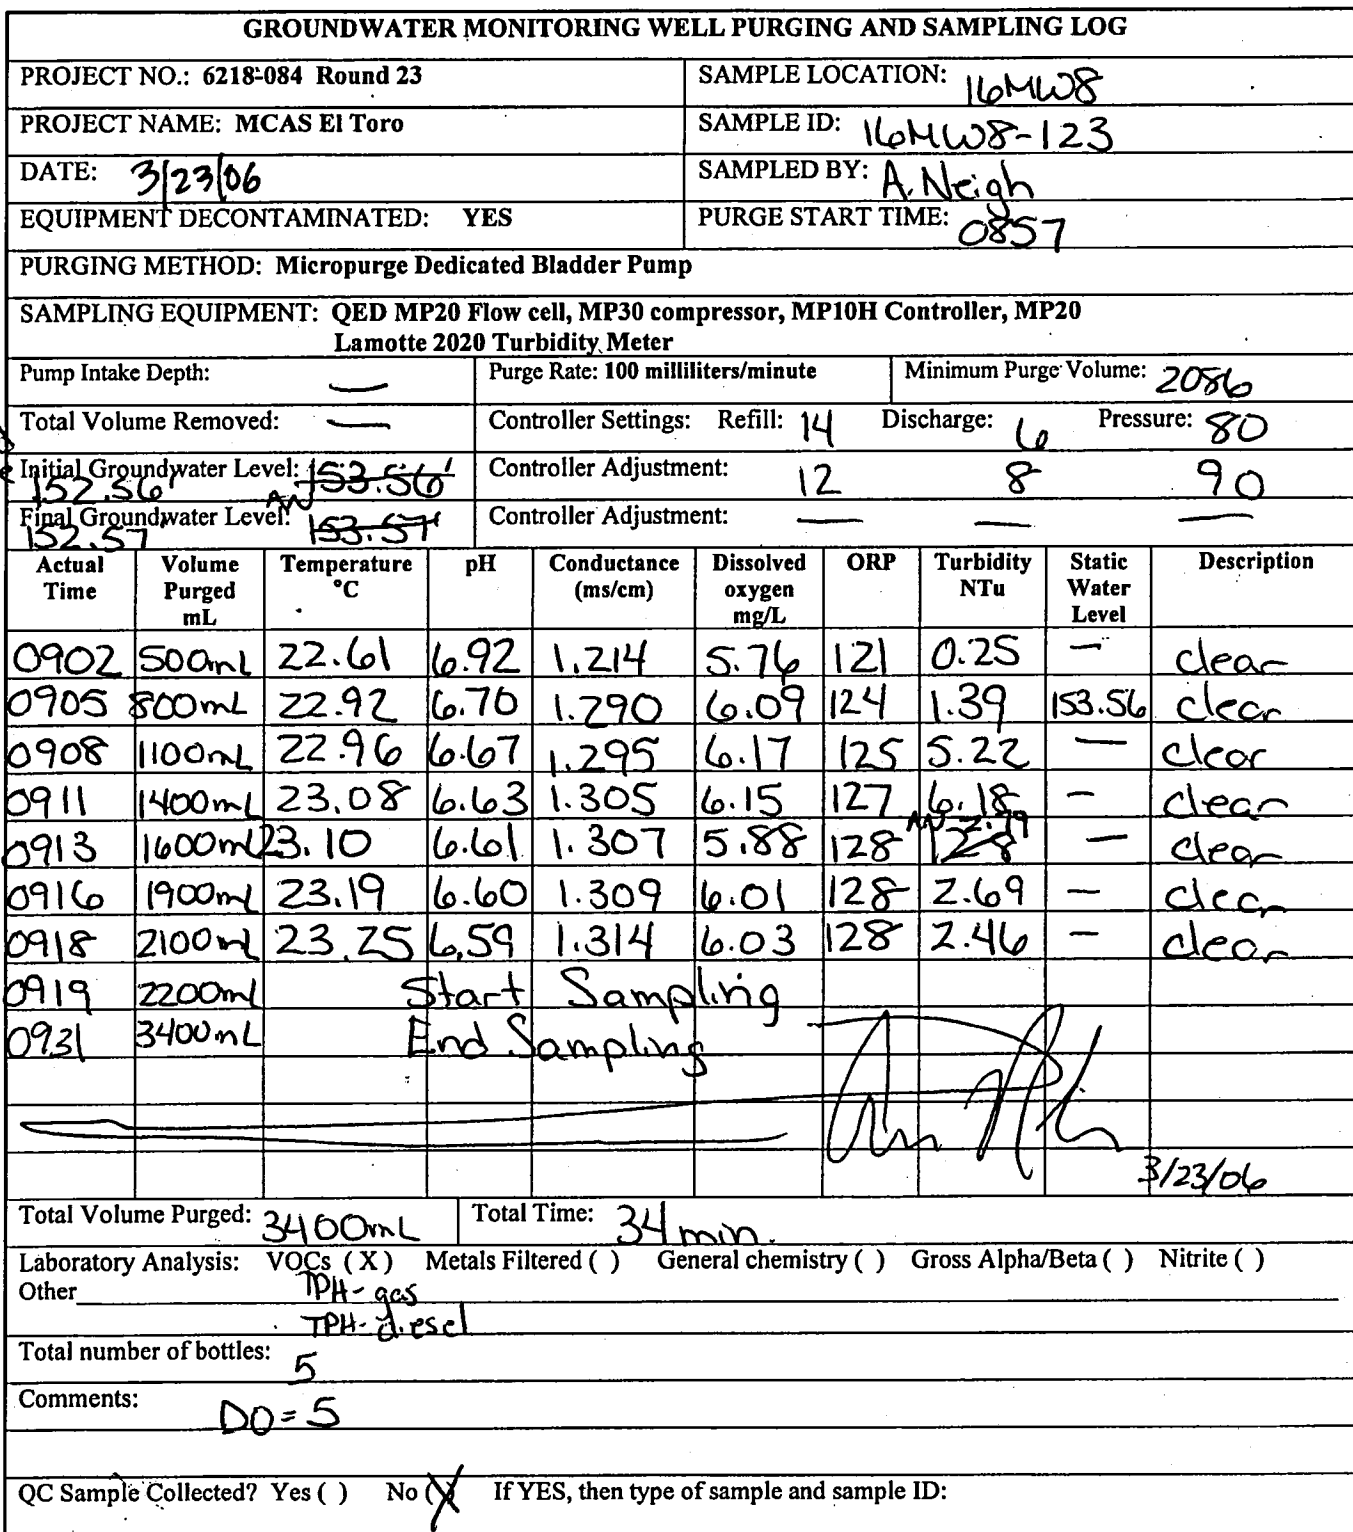 GROUNDWATER MONITORING WELL PURGING AND SAMPLING LOG
PROJECT NO.: 6218-084 Round 23 SAMPLE LOCATION: 16MW8
PROJECT NAME: MCAS El Toro SAMPLE ID: 16MW8-123
DATE: 3/23/06 SAMPLED BY: A. Neigh
EQUIPMENT DECONTAMINATED: YES PURGE START TIME: 0857
PURGING METHOD: Micropurge Dedicated Bladder Pump
SAMPLING EQUIPMENT: QED MP20 Flow cell, MP30 compressor, MP10H Controller, MP20
Lamotte 2020 Turbidity Meter
Pump Intake Depth: — Purge Rate: 100 milliliters/minute Minimum Purge Volume: 2086
Total Volume Removed: — Controller Settings: Refill: 14 Discharge: 6 Pressure: 80
Initial Groundwater Level: 153.56' Controller Adjustment: 12 8 90
152.56' AN
Final Groundwater Level: 153.57' Controller Adjustment: — — —
152.57
Actual Time Volume Purged mL Temperature °C pH Conductance (ms/cm) Dissolved oxygen mg/L ORP Turbidity NTu Static Water Level Description
0902 500mL 22.61 6.92 1.214 5.76 121 0.25 — clear
0905 800mL 22.92 6.70 1.290 6.09 124 1.39 153.56 clear
0908 1100mL 22.96 6.67 1.295 6.17 125 5.22 — clear
0911 1400mL 23.08 6.63 1.305 6.15 127 6.18 — clear
0913 1600mL 23.10 6.61 1.307 5.88 128 AN 2.79 128 — clear
0916 1900mL 23.19 6.60 1.309 6.01 128 2.69 — clear
0918 2100mL 23.25 6.59 1.314 6.03 128 2.46 — clear
0919 2200mL Start Sampling
0931 3400mL End Sampling
3/23/06
Total Volume Purged: 3400mL Total Time: 34 min.
Laboratory Analysis: VOCs (X) Metals Filtered ( ) General chemistry ( ) Gross Alpha/Beta ( ) Nitrite ( )
Other TPH-gas
TPH-diesel
Total number of bottles: 5
Comments: DO = 5
QC Sample Collected? Yes ( ) No (X) If YES, then type of sample and sample ID: